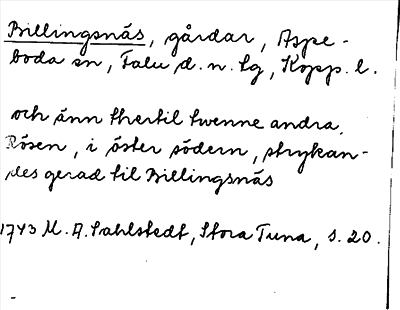 Billingsnäs, gårdar, Aspe-
boda sn, Falu d. n. tg, Kopp. l.
och änn thertil twenne andra
Rösen, i öster södern, strykan-
des gerad til Billingsnäs
1743 M. A. Sahlstedt, Stora Tuna, s. 20.